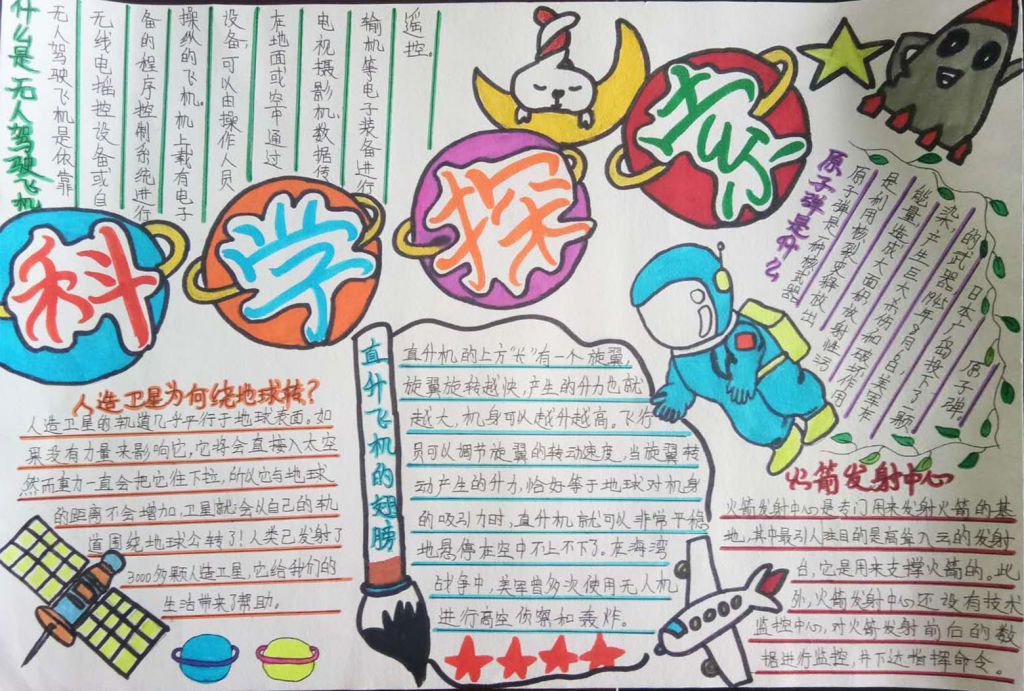 科学探索
什么是无人驾驶飞机
无人驾驶飞机是依靠
无线电摇控设备或自
备的程序控制系统进行
操纵的飞机。机上载有电子
设备,可以由操作人员
在地面或空中通过
电视摄影机、数据传
输机等电子装备进行
遥控。
原子弹是什么
原子弹是一种核武器
是利用核裂变释放出
能量,造成大面积放射性污
染,产生巨大杀伤和破坏作用
的武器。1945年8月6日,美军在
日本广岛投下了一颗
原子弹。
人造卫星为何绕地球转?
人造卫星的轨道几乎平行于地球表面。如
果没有力量来影响它,它将会直接入太空
然而重力一直会把它往下拉,所以它与地球
的距离不会增加,卫星就会以自己的轨
道围绕地球公转了!人类已发射了
3000多颗人造卫星,它给我们的
生活带来了帮助。
直升飞机的翅膀
直升机的上方“长”有一个旋翼,
旋翼旋转越快,产生的升力也就
越大,机身可以越升越高。飞行
员可以调节旋翼的转动速度,当旋翼转
动产生的升力,恰好等于地球对机身
的吸引力时,直升机就可以非常平稳
地悬停在空中不上不下了。在海湾
战争中,美军曾多次使用无人机
进行高空侦察和轰炸。
火箭发射中心
火箭发射中心是专门用来发射火箭的基
地,其中最引人注目的是高耸入云的发射
台,它是用来支撑火箭的。此
外,火箭发射中心还设有技术
监控中心,对火箭发射前后的数
据进行监控,并下达指挥命令。